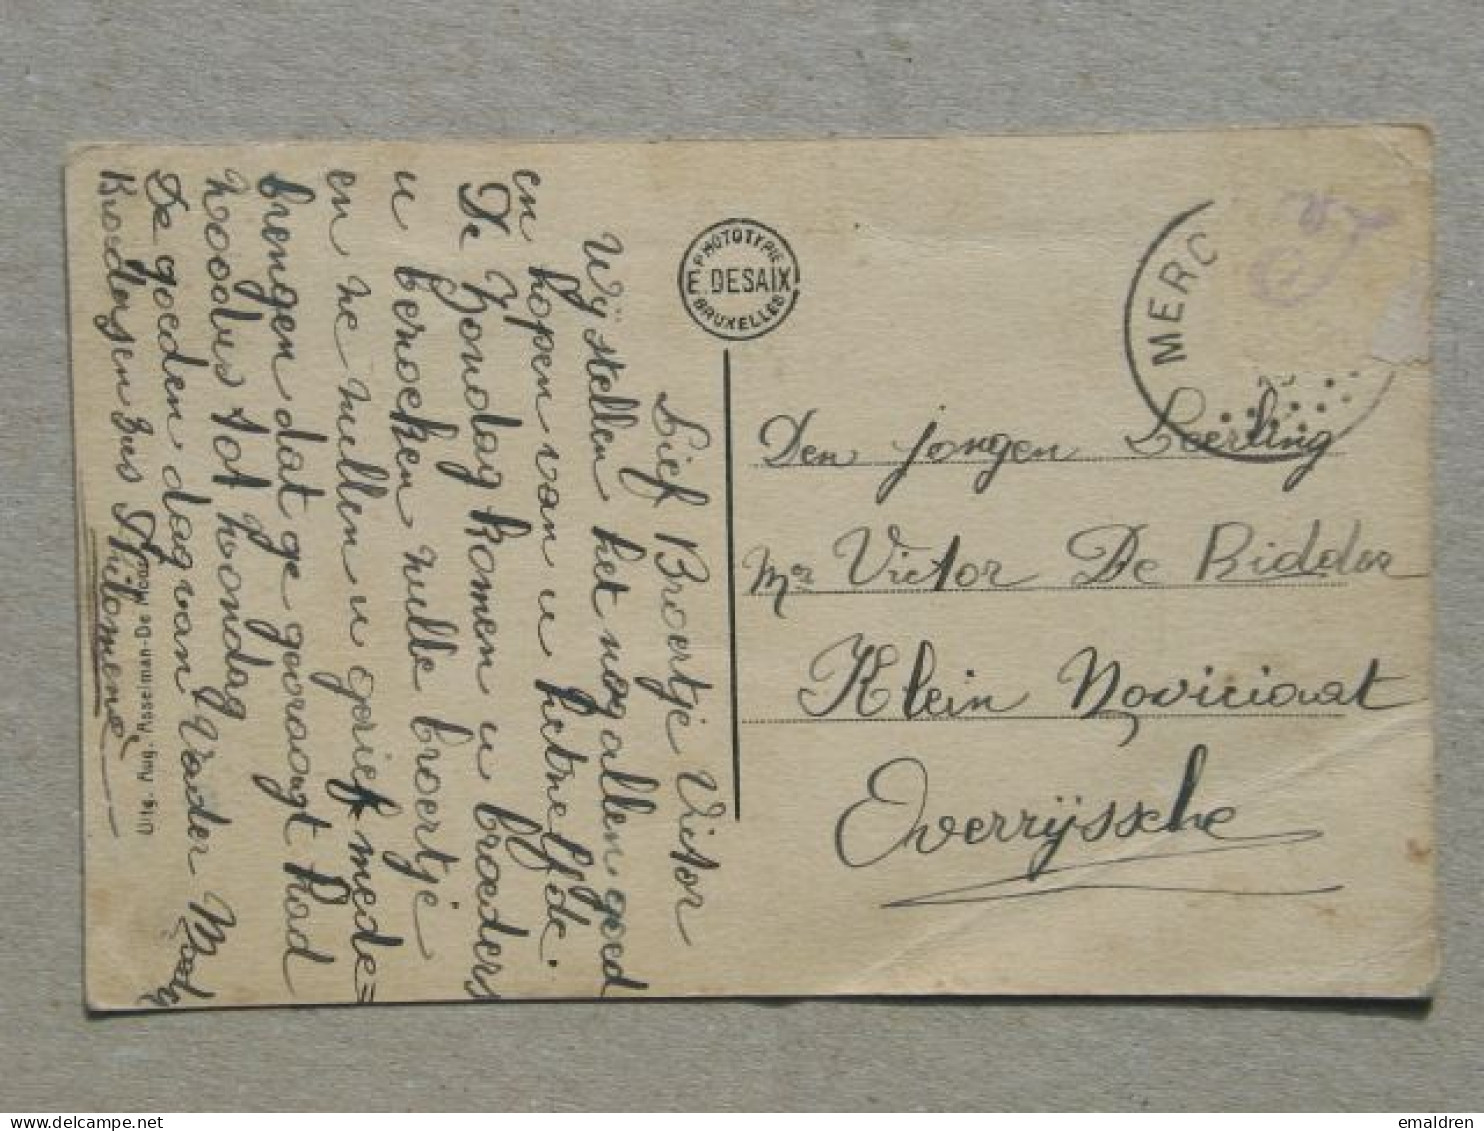 Lief Broertje Victor
Wij stellen het nog allen goed
en hopen van u hetzelfde.
De Zondag komen u broeders
u bezoeken zulle broertje
en ze zullen u gerief mede=
brengen dat ge gevraagt had
voodus tot zondag
De goeden dag van Vader Moeder
Broeders en Zus Philomene
Uitg. Aug. Asselman-De
PHOTOTYPIE
E. DESAIX
BRUXELLES
MERC
Den jongen Leerling
Mer Victor De Ridder
Klein Noviciaat
Overrijssche
www.delcampe.net
emaldren